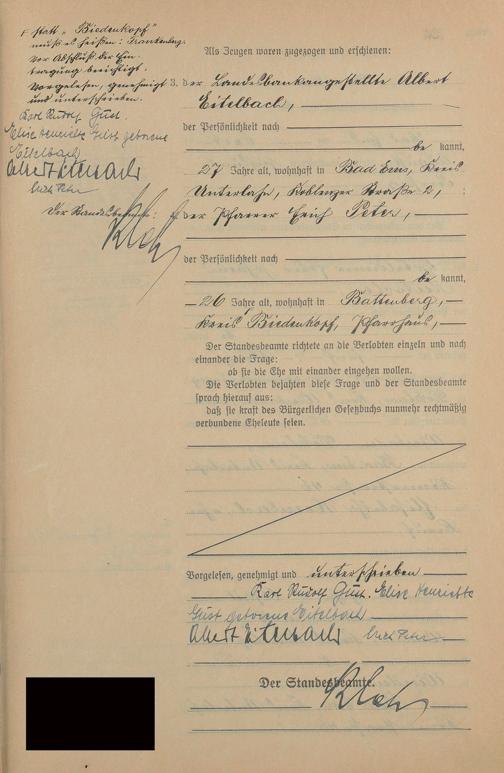 statt „Biedenkopf“
muß es heißen: Frankenberg.
vor Abschluß der Ein-
tragung berichtigt.
Vorgelesen, genehmigt
und unterschrieben.
Karl Rudolf Gust.
Elise Henriette Gust geborene
Eitelbach
Albert Eitelbach
Erich Peter
Der Standesbeamte:
Als Zeugen waren zugezogen und erschienen:
3. der Landesbankangestellte Albert
Eitelbach,
der Persönlichkeit nach
be kannt,
27 Jahre alt, wohnhaft in Bad Ems, Kreis
Unterlahn, Koblenzer Straße 2, ;
4. der Pfarrer Erich Peter,
der Persönlichkeit nach
be kannt,
26 Jahre alt, wohnhaft in Battenberg,
Kreis Biedenkopf, Pfarrhaus,
Der Standesbeamte richtete an die Verlobten einzeln und nach
einander die Frage:
ob sie die Ehe mit einander eingehen wollen.
Die Verlobten bejahten diese Frage und der Standesbeamte
sprach hierauf aus:
daß sie kraft des Bürgerlichen Gesetzbuchs nunmehr rechtmäßig
verbundene Eheleute seien.
Vorgelesen, genehmigt und unterschrieben
Karl Rudolf Gust. Elise Henriette
Gust geborene Eitelbach
Albert Eitelbach Erich Peter
Der Standesbeamte.